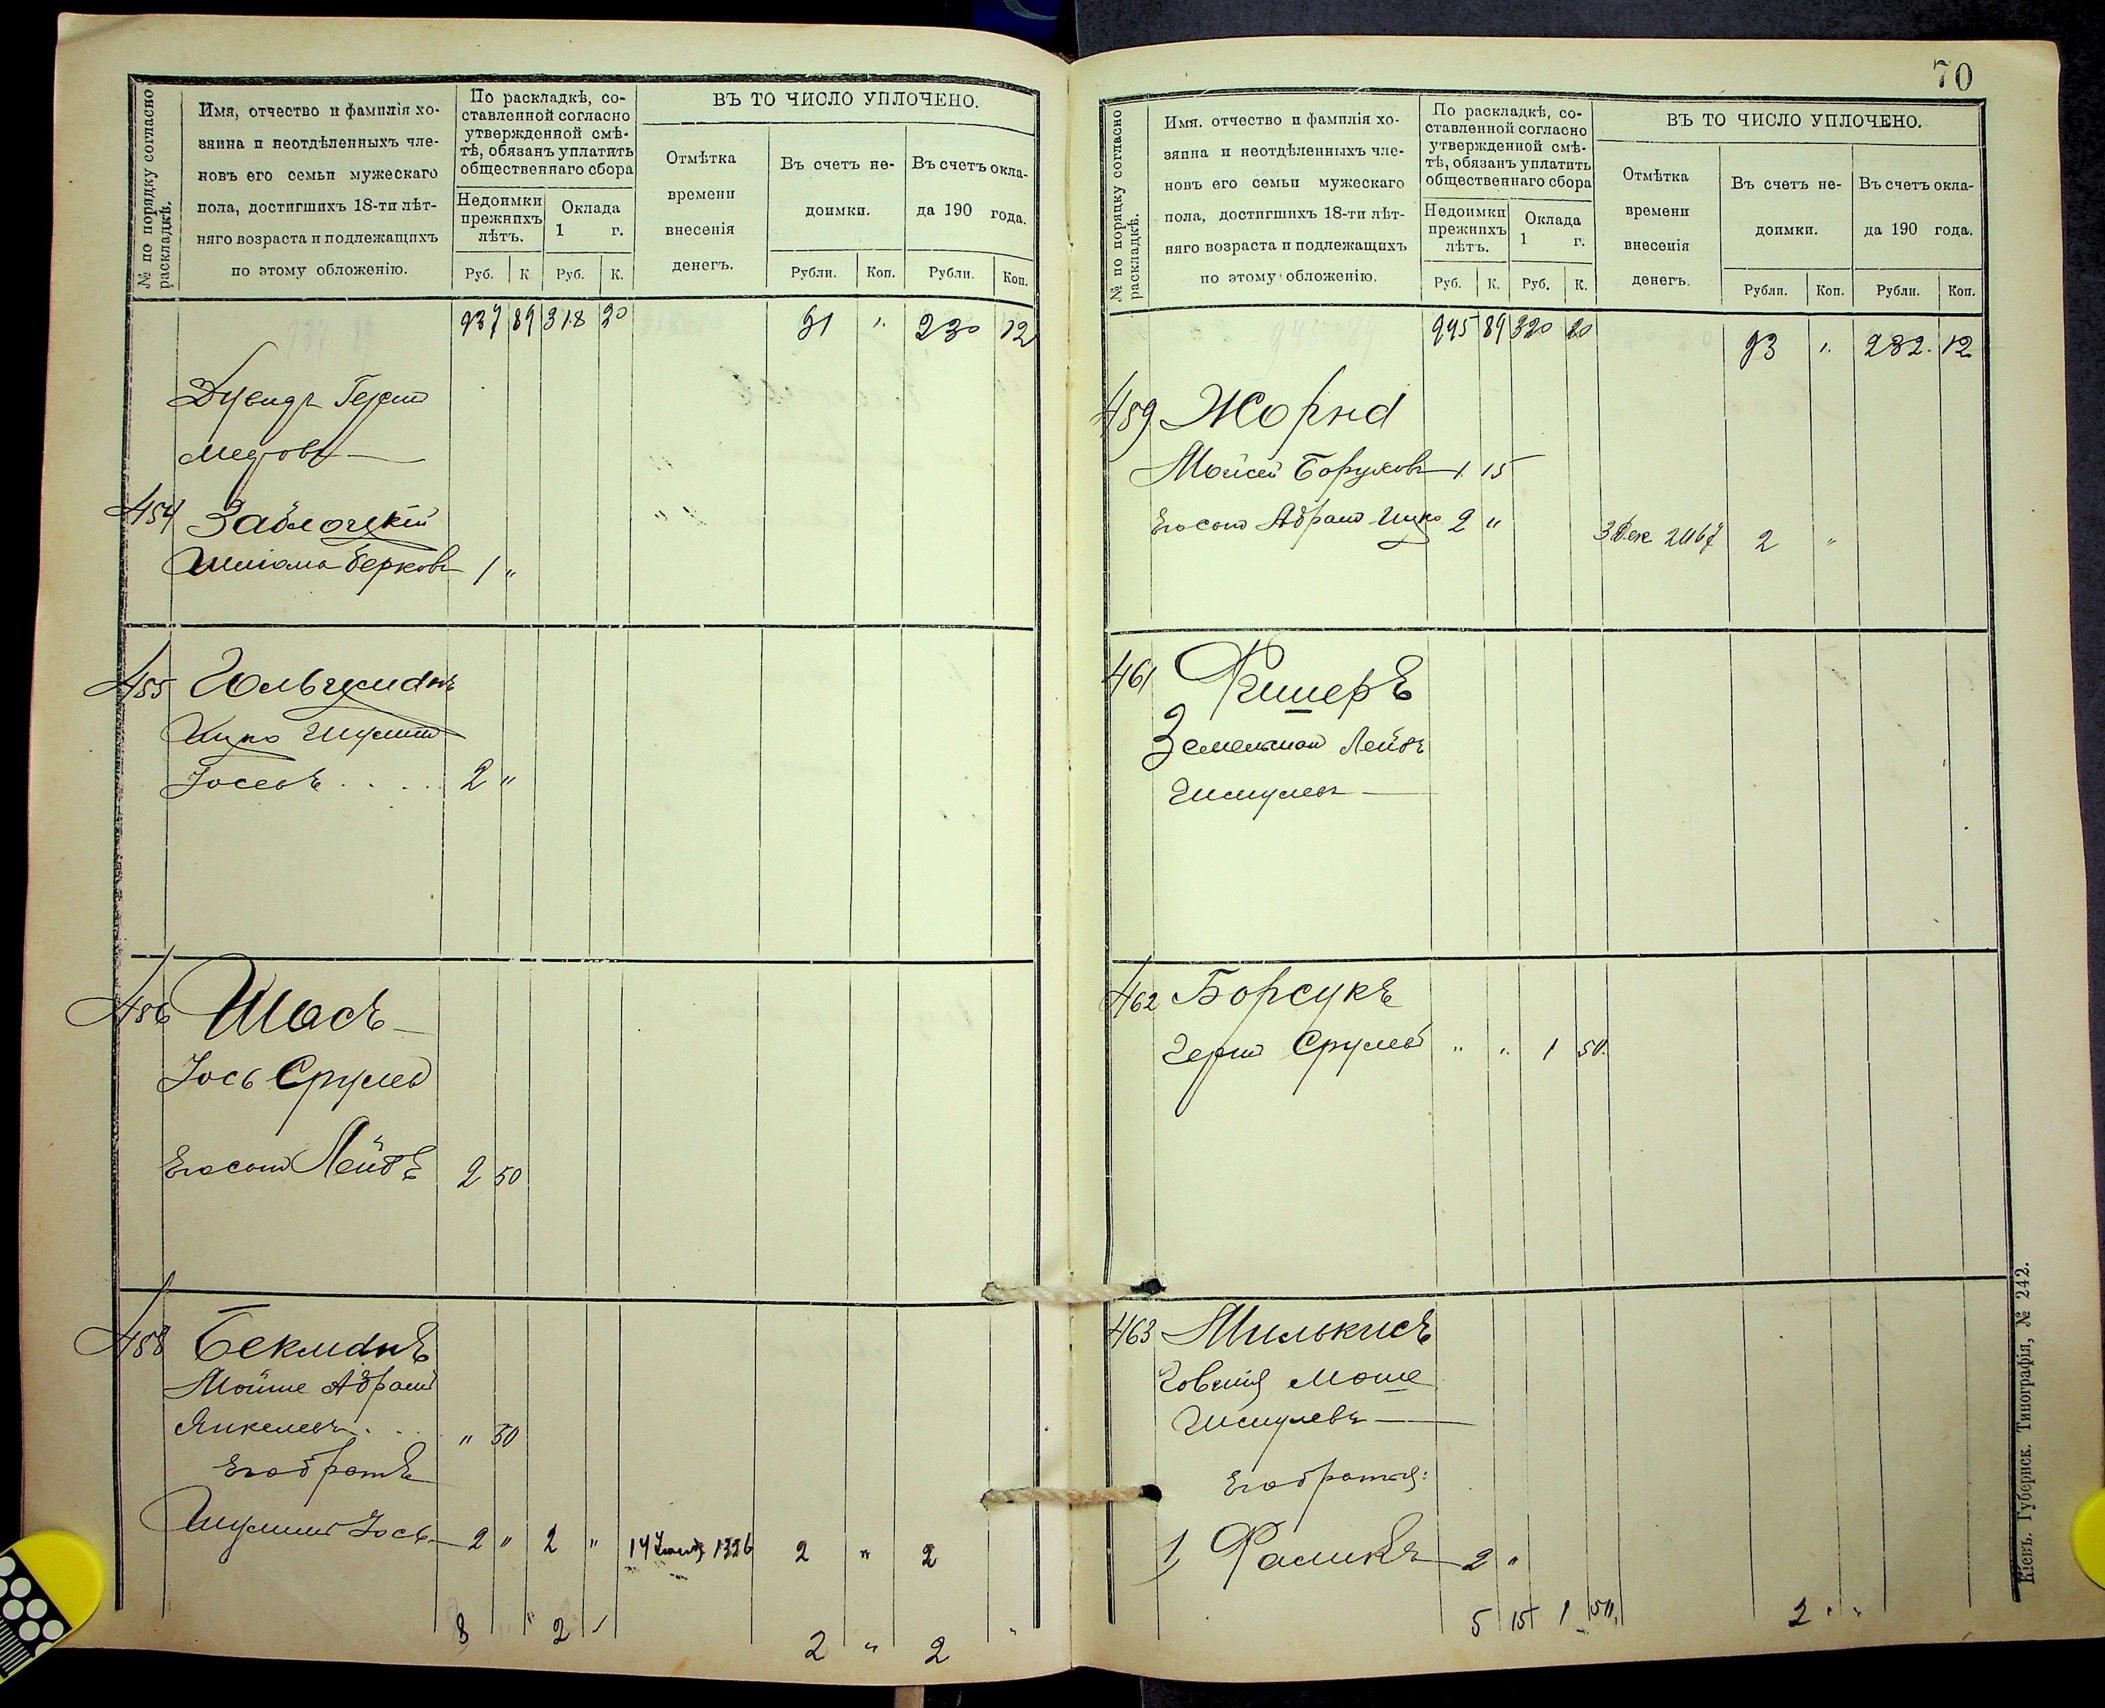 № по порядку согласно раскладкѣ.
Имя, отчество и фамилія хо-
зяина и неотдѣленныхъ чле-
новъ его семьи мужескаго
пола, достигшихъ 18-ти лѣт-
няго возраста и подлежащихъ
по этому обложенію.
По раскладкѣ, со-
ставленной согласно
утвержденной смѣ-
тѣ, обязанъ уплатить
общественнаго сбора
Недоимки
прежнихъ
лѣтъ.
Оклада
1 г.
Руб. К. Руб. К.
ВЪ ТО ЧИСЛО УПЛОЧЕНО.
Отмѣтка
времени
внесенія
денегъ.
Въ счетъ не-
доимки.
Въ счетъ окла-
да 190 года.
Рубли. Коп. Рубли. Коп.
937 89 318 20 91 " 230 12
Дувидъ Герш
454 Заблоцкій
Шліома Берковъ 1 "
455 Гольцманъ
Ицко Шулим
Іосевъ . . . . 2 "
456 Шасъ
Іось Срулев
Его сын Лейбъ 2 50
458 Бекманъ
Мойше Абрам
Янкелевъ . . . " 50
Его братъ
Шулим Іось 2 " 2 " 14 1326 2 " 2
8 " 2 2 " 2 "
70
№ по порядку согласно раскладкѣ.
Имя, отчество и фамилія хо-
зяина и неотдѣленныхъ чле-
новъ его семьи мужескаго
пола, достигшихъ 18-ти лѣт-
няго возраста и подлежащихъ
по этому обложенію.
По раскладкѣ, со-
ставленной согласно
утвержденной смѣ-
тѣ, обязанъ уплатить
общественнаго сбора
Недоимки
прежнихъ
лѣтъ.
Оклада
1 г.
Руб. К. Руб. К.
ВЪ ТО ЧИСЛО УПЛОЧЕНО.
Отмѣтка
времени
внесенія
денегъ.
Въ счетъ не-
доимки.
Въ счетъ окла-
да 190 года.
Рубли. Коп. Рубли. Коп.
945 89 320 20 93 " 232 12
459 Жорна
Мойсей Борухов 1 15
Его сын Абрам Ицко 2 " 3 Дек 2 "
461 Фишеръ
Лейбъ
Шмулев
462 Борсукъ
Герш Срулев " " 1 50
463 Милькисъ
Моше
Шмулевъ
Его братья:
1, Фаликъ 2 "
5 15 1 50 2 " "
Кіевъ. Губернск. Типографія, № 242.